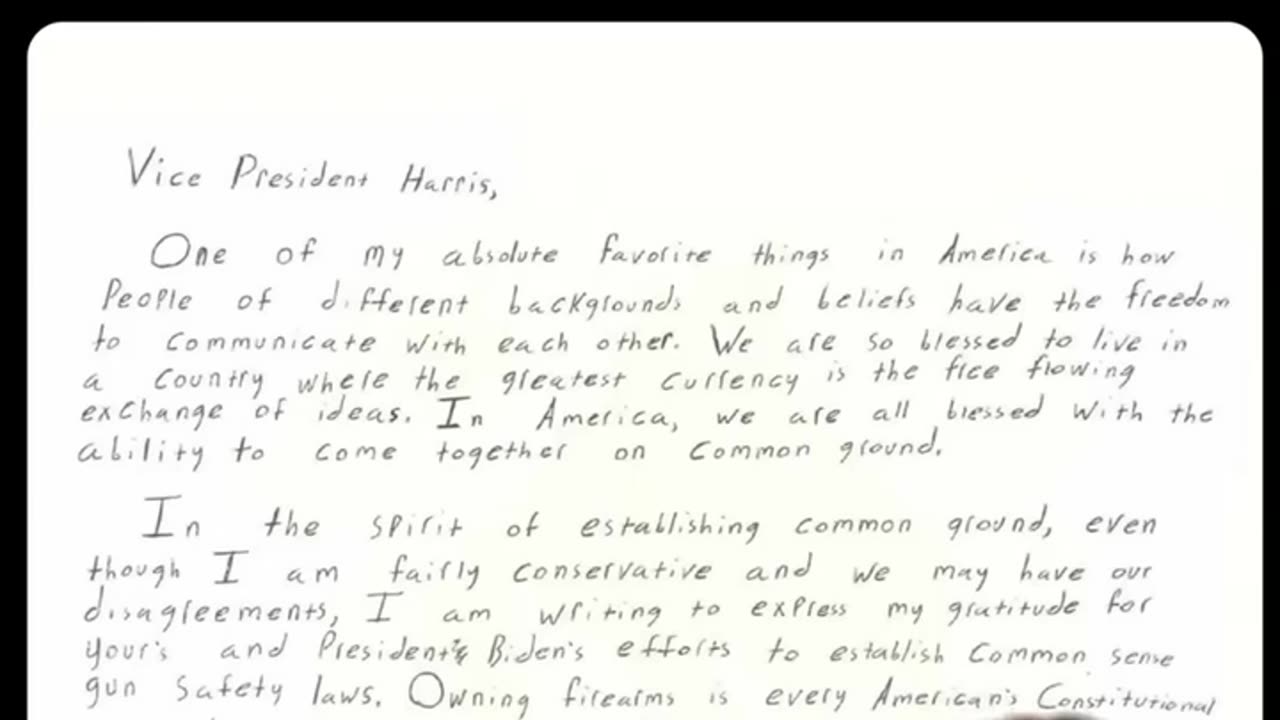 Vice President Harris,
One of my absolute favorite things in America is how
People of different backgrounds and beliefs have the freedom
to communicate with each other. We are so blessed to live in
a Country where the greatest currency is the free flowing
exchange of ideas. In America, we are all blessed with the
ability to come together on common ground.
In the spirit of establishing common ground, even
though I am fairly conservative and we may have our
disagreements, I am writing to express my gratitude for
your's and President's Biden's efforts to establish Common sense
gun safety laws. Owning firearms is every American's Constitutional